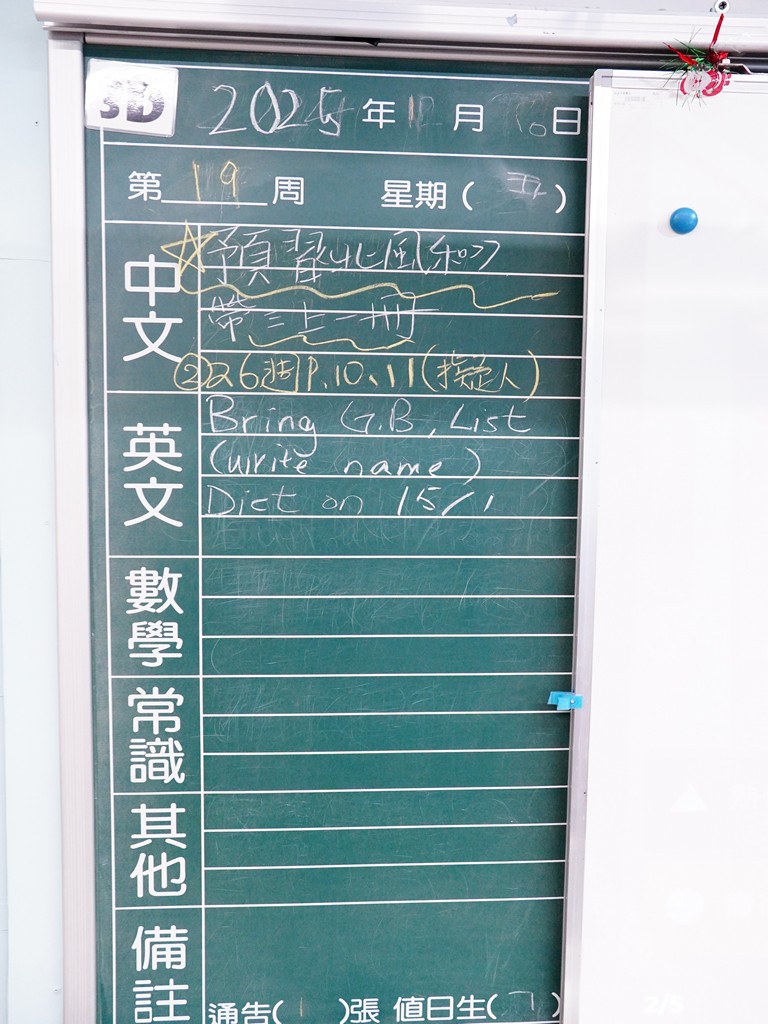 3D 2025年 月 日
第19周 星期(五)
中文
預習北風和
帶三上一冊
②26週P.10、11(擬人)
英文
Bring G.B, List
(Write name)
Dict on 15/1
數學
常識
其他
備註
通告( )張 值日生( )
2/5